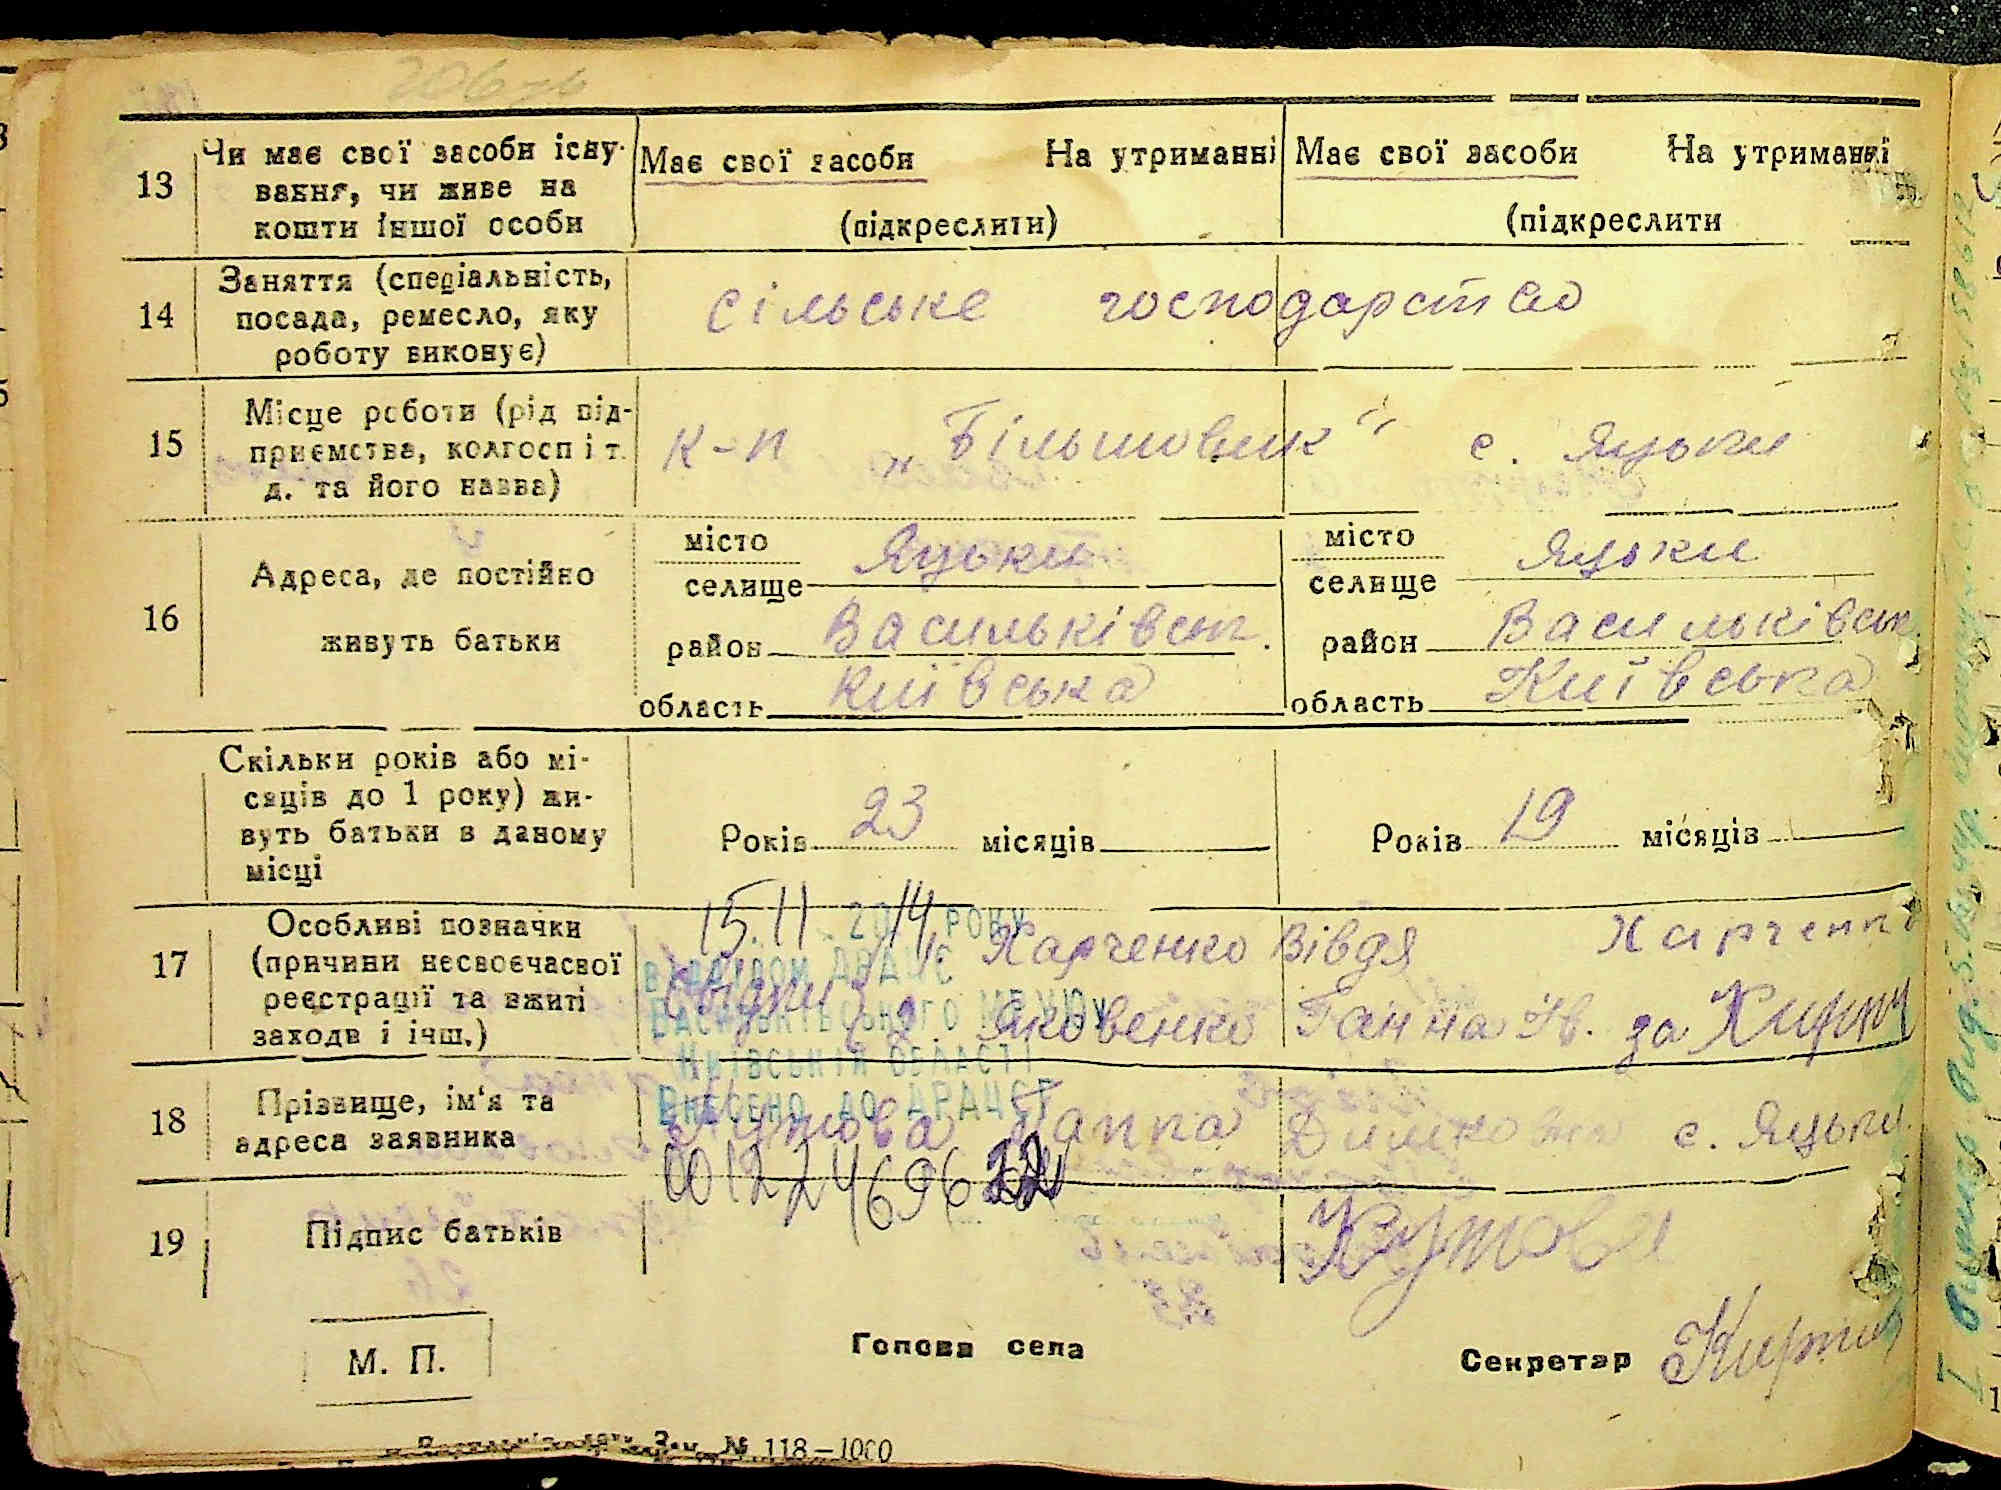 13
Чи має свої засоби існу-
вання, чи живе на
кошти іншої особи
Має свої засоби На утриманні
(підкреслити)
Має свої засоби На утриманні
(підкреслити
14
Заняття (спеціальність,
посада, ремесло, яку
роботу виконує)
сільське господарство
15
Місце роботи (рід під-
приємства, колгосп і т.
д. та його назва)
к-п „Більшовик" с. Яцьки
16
Адреса, де постійно
живуть батьки
місто
селище Яцьки
район Васильківськ.
область Київська
місто
селище Яцьки
район Васильківськ
область Київська
Скільки років або мі-
сяців до 1 року) жи-
вуть батьки в даному
місці
Років 23 місяців
Років 19 місяців
17
Особливі позначки
(причини несвоєчасної
реєстрації та вжиті
заходи і інш.)
15.11 2014 РОКУ
ВІДДІЛОМ ДРАЦС
ВАСИЛЬКІВСЬКОГО МРУЮ
КИЇВСЬКІЙ ОБЛАСТІ
ВНЕСЕНО ДО ДРАЦСГ
Свідки 1. Харченко Вівдя Харченко
2. Яковенко Ганна Ів. за
18
Прізвище, ім'я та
адреса заявника
Кутова Ганна с. Яцьки.
00122469622
19
Підпис батьків
Кутова
М. П.
Голова села
Секретар
№ 118—1000